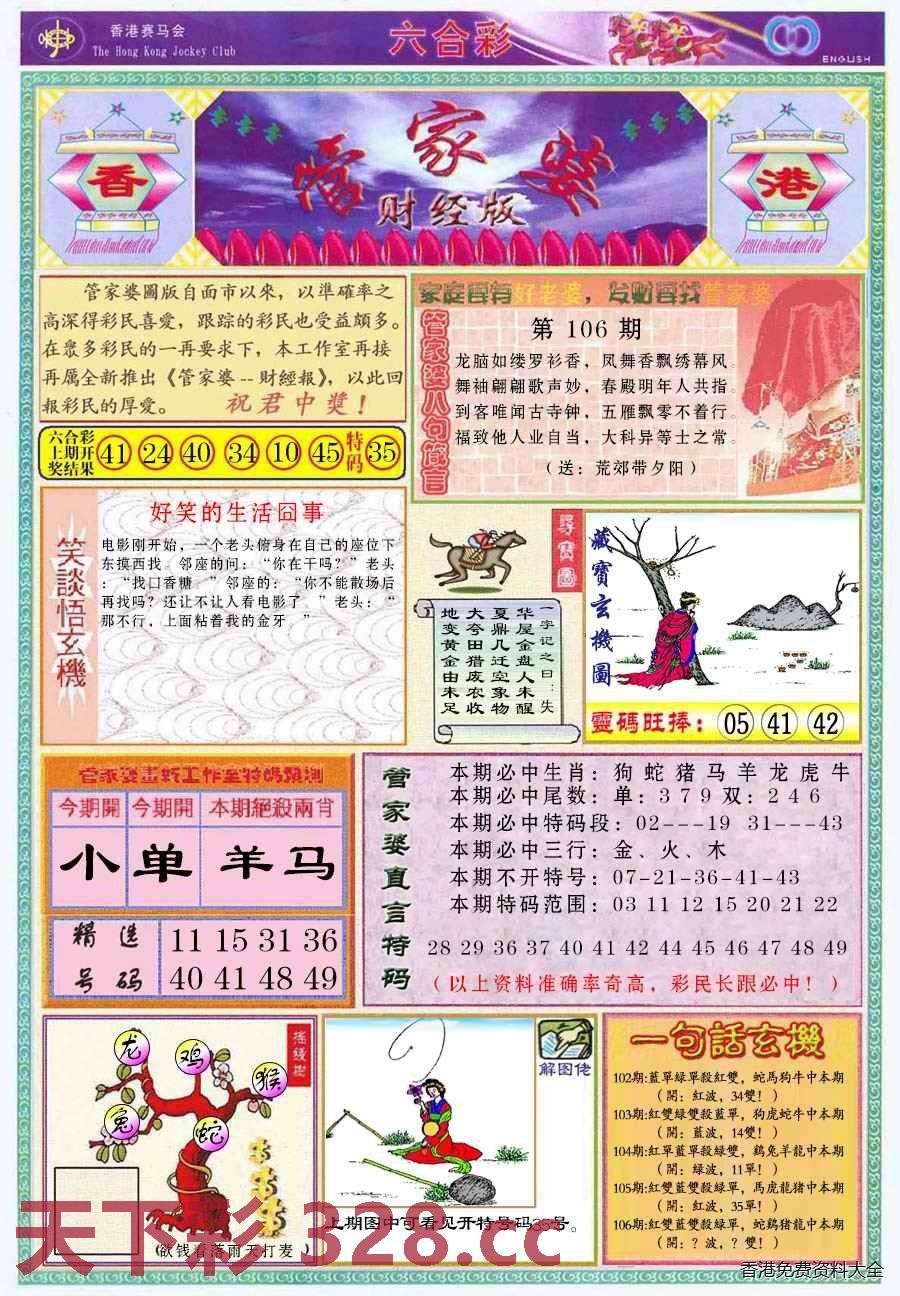 香港赛马会
The Hong Kong Jockey Club
六合彩
ENGLISH
香
管家婆
财经版
港
管家婆圖版自面市以來，以準確率之
高深得彩民喜愛，跟踪的彩民也受益頗多。
在眾多彩民的一再要求下，本工作室再接
再厲全新推出《管家婆--財經報》，以此回
報彩民的厚愛。 祝君中獎！
六合彩
上期开
奖结果
41 24 40 34 10 45 特码 35
家庭要有好老婆，发财要找管家婆
管家婆八句箴言
第 106 期
龙脑如缕罗衫香，凤舞香飘绣幕风。
舞袖翩翩歌声妙，春殿明年人共指。
到客唯闻古寺钟，五雁飘零不着行。
福致他人业自当，大科异等士之常。
（送：荒郊带夕阳）
笑談悟玄機
好笑的生活囧事
电影刚开始，一个老头俯身在自己的座位下
东摸西找。邻座的问：“你在干吗？”老头
：“找口香糖。”邻座的：“你不能散场后
再找吗？还让不让人看电影了。”老头：“
那不行，上面粘着我的金牙。”
尋寶圖
一字记之曰：失
华屋金盘人未醒
夏鼎几迁空象物
大夸田猎废农收
地变黄金由未足
藏寶玄機圖
靈碼旺捧：05 41 42
今期開 今期開 本期絕殺兩肖
小 单 羊马
精选
号码
11 15 31 36
40 41 48 49
管家婆直言特码
本期必中生肖：狗 蛇 猪 马 羊 龙 虎 牛
本期必中尾数：单：3 7 9 双：2 4 6
本期必中特码段：02---19 31---43
本期必中三行：金、火、木
本期不开特号：07-21-36-41-43
本期特码范围：03 11 12 15 20 21 22
28 29 36 37 40 41 42 44 45 46 47 48 49
（以上资料准确率奇高，彩民长跟必中！）
摇錢樹
龙
鸡
猴
兔
蛇
（欲钱看落雨天打麦）
解图佬
上期图中可看见开特号码35号。
一句話玄機
102期:藍單綠單殺紅雙，蛇馬狗牛中本期
（開：紅波，34雙！）
103期:紅雙綠雙殺藍單，狗虎蛇牛中本期
（開：藍波，14雙！）
104期:紅單藍單殺綠雙，鷄兔羊龍中本期
（開：綠波，11單！）
105期:紅雙藍雙殺綠單，馬虎龍猪中本期
（開：紅波，35單！）
106期:紅雙藍雙殺綠單，蛇鷄猪龍中本期
（開：？波，？雙！）
天下彩 328.cc
香港免费资料大全